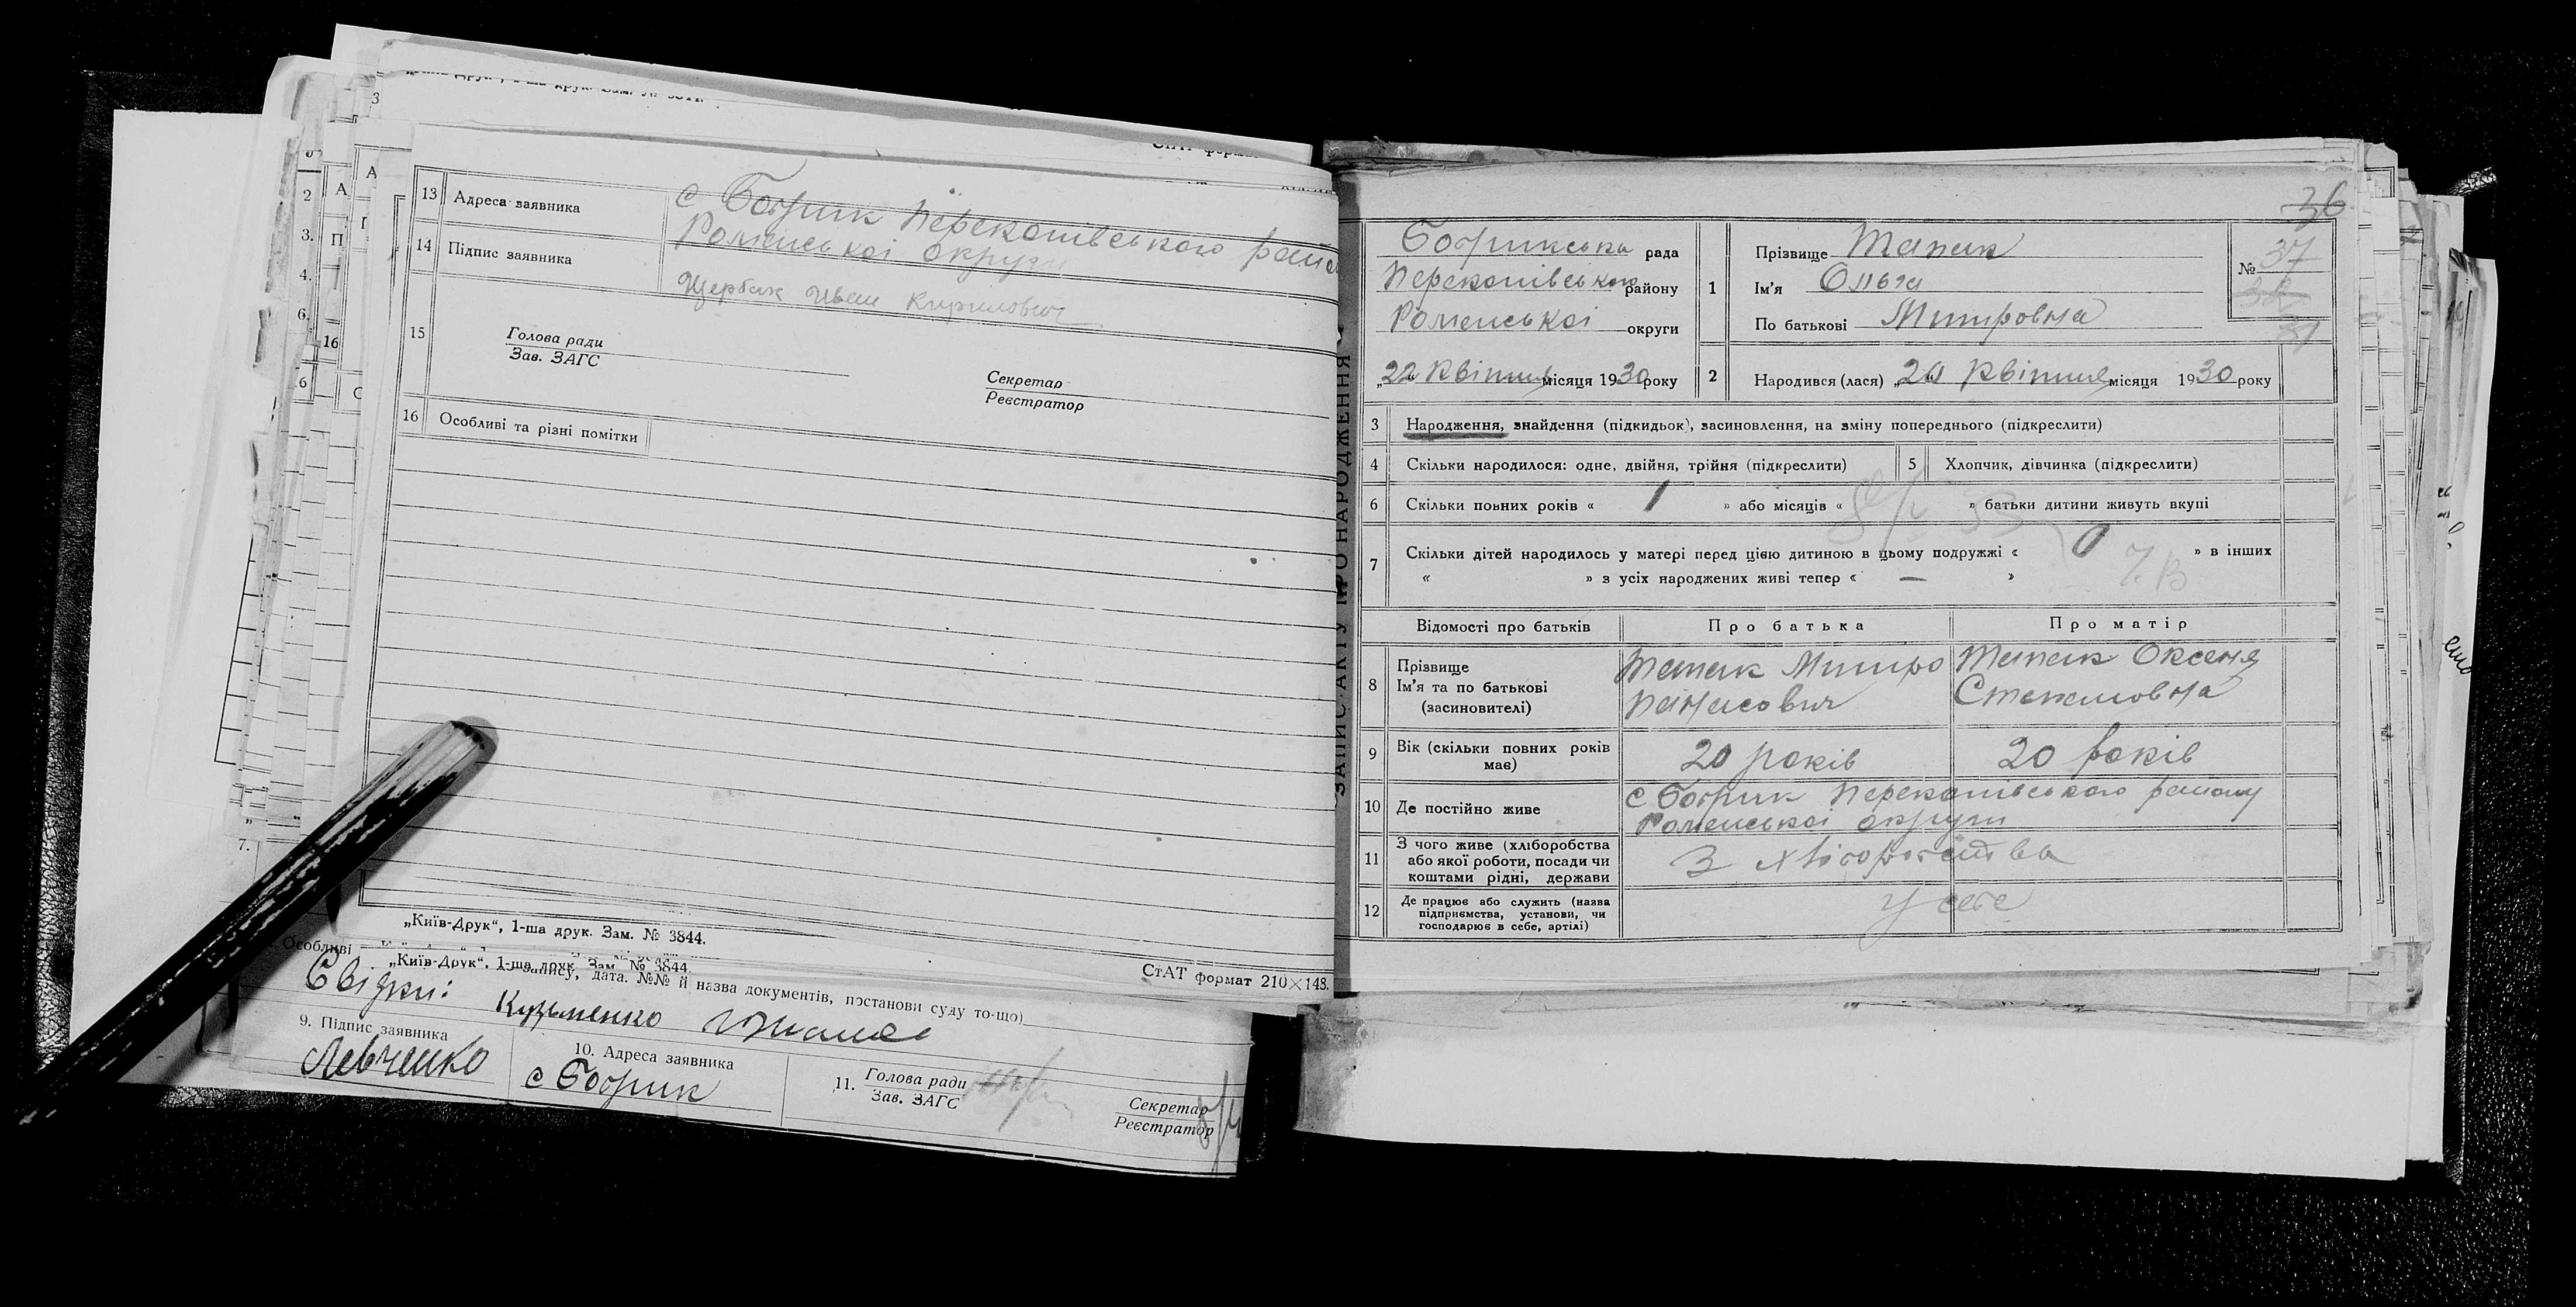 13 Адреса заявника с Бобрик Перекопівського райо
Роменської округи
14 Підпис заявника
Щербак Иван Кирилович
15 Голова ради
Зав. ЗАГС
Секретар
Реєстратор
16 Особливі та різні помітки
„Київ-Друк“, 1-ша друк. Зам. № 3844.
СтАТ формат 210×148.
Особливі
„Київ-Друк“, 1-ша друк. Зам. № 3844
запису, дата. №№ й назва документів, постанови суду то-що)
Свідки: Кузьменко
9. Підпис заявника
Левченко
10. Адреса заявника
с Бобрик
11. Голова ради
Зав. ЗАГС
Секретар
Реєстратор
ЗАПИС АКТУ ПРО НАРОДЖЕННЯ
36
Бобрикська рада
Перекопівського району
Роменської округи
„22“ Квітня місяця 1930 року
1 Прізвище Тапак
Ім'я Ольга
По батькові Митровна
№ 37
2 Народився (лася) „20“ Квітня місяця 1930 року
3 Народження, знайдення (підкидьок), засиновлення, на зміну попереднього (підкреслити)
4 Скільки народилося: одне, двійня, трійня (підкреслити)
5 Хлопчик, дівчинка (підкреслити)
6 Скільки повних років « 1 » або місяців « » батьки дитини живуть вкупі
7 Скільки дітей народилось у матері перед цією дитиною в цьому подружжі « 0 » в інших
« » з усіх народжених живі тепер « — »
Відомості про батьків Про батька Про матір
8 Прізвище
Ім'я та по батькові
(засиновителі)
Тапак Митро
Панасович
Тапак Оксеня
Степановна
9 Вік (скільки повних років
має)
20 років 20 років
10 Де постійно живе
с Бобрик Перекопівського району
Роменської округи
11 З чого живе (хліборобства
або якої роботи, посади чи
коштами рідні, держави
З хліборобства
12 Де працює або служить (назва
підприємства, установи, чи
господарює в себе, артілі)
У себе